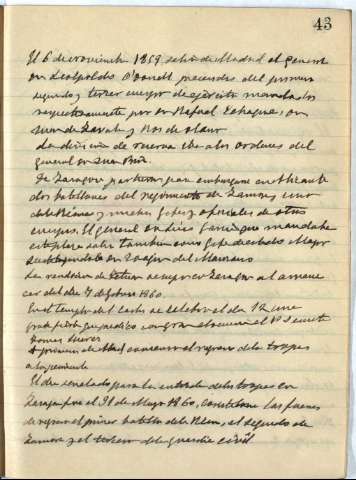 43
El 6 de noviembre 1859 salió de Madrid el general
don Leopoldo O'Donell precedido del primero
segundo y tercer cuerpo de ejército mandados
respectivamente por don Rafael Echague, don
Juan de Zavala y Ros de Olano
La división de reserva iba a las ordenes del
general don Juan Prim.
De Zaragoza partieron para embarcarse en Alicante
dos batallones del regimiento de Zamora, uno
de la Reina y muchos jefes y oficiales de otros
cuerpos. El general don Luis García que mandaba
esta plaza salió también como Jefe de estado Mayor
La rendición de Tetuan se supo en Zaragoza al amane
cer del dia 7 de febrero 1860.
En el templo del se celebró el dia 12 una
gran fiesta
Gomez
regreso de las tropas
a la península
El dia señalado para la entrada de las tropas en
Zaragoza fue el 31 de Mayo 1860, las fuerzas
de regreso el primer batallon de la Reina, el segundo de
Zamora y el tercero de la guardia civil